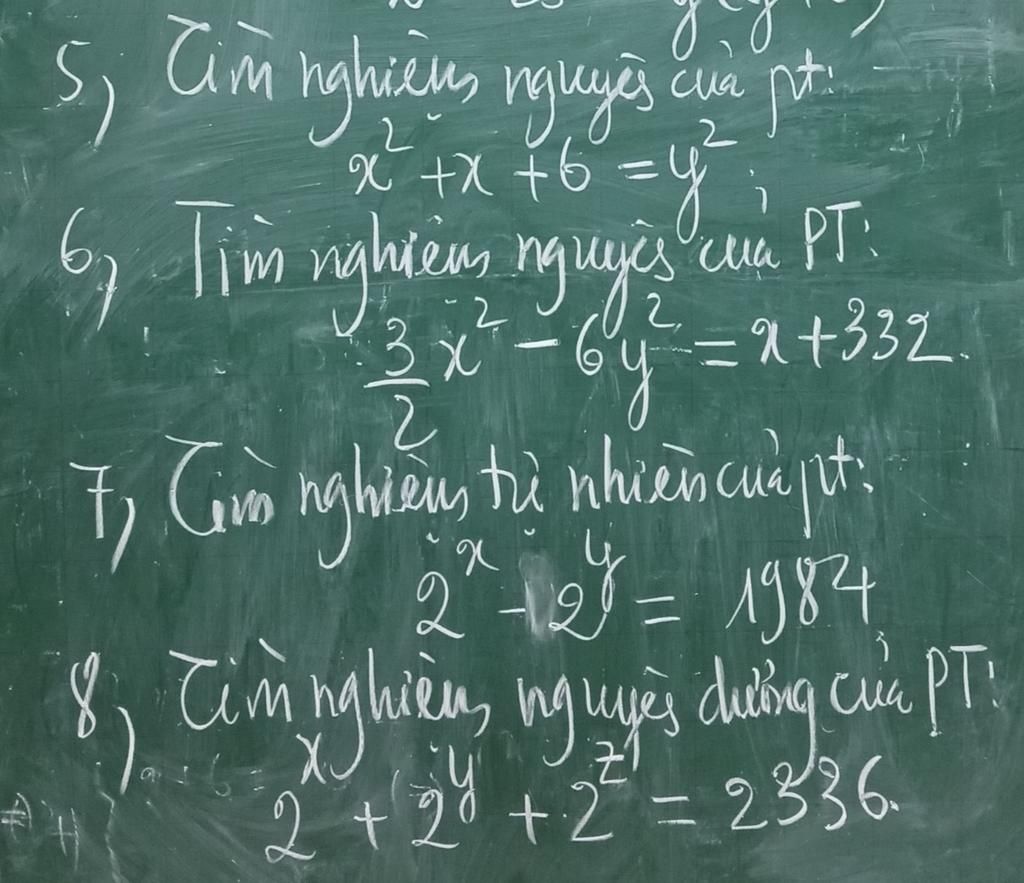 5, Tìm nghiệm nguyên của pt:
x² + x + 6 = y² ;
6, Tìm nghiệm nguyên của PT:
3/2 x² - 6y² = x + 332.
7, Tìm nghiệm tự nhiên của pt:
2ˣ - 2ʸ = 1984
8, Tìm nghiệm nguyên dương của PT:
2ˣ + 2ʸ + 2ᶻ = 2336.